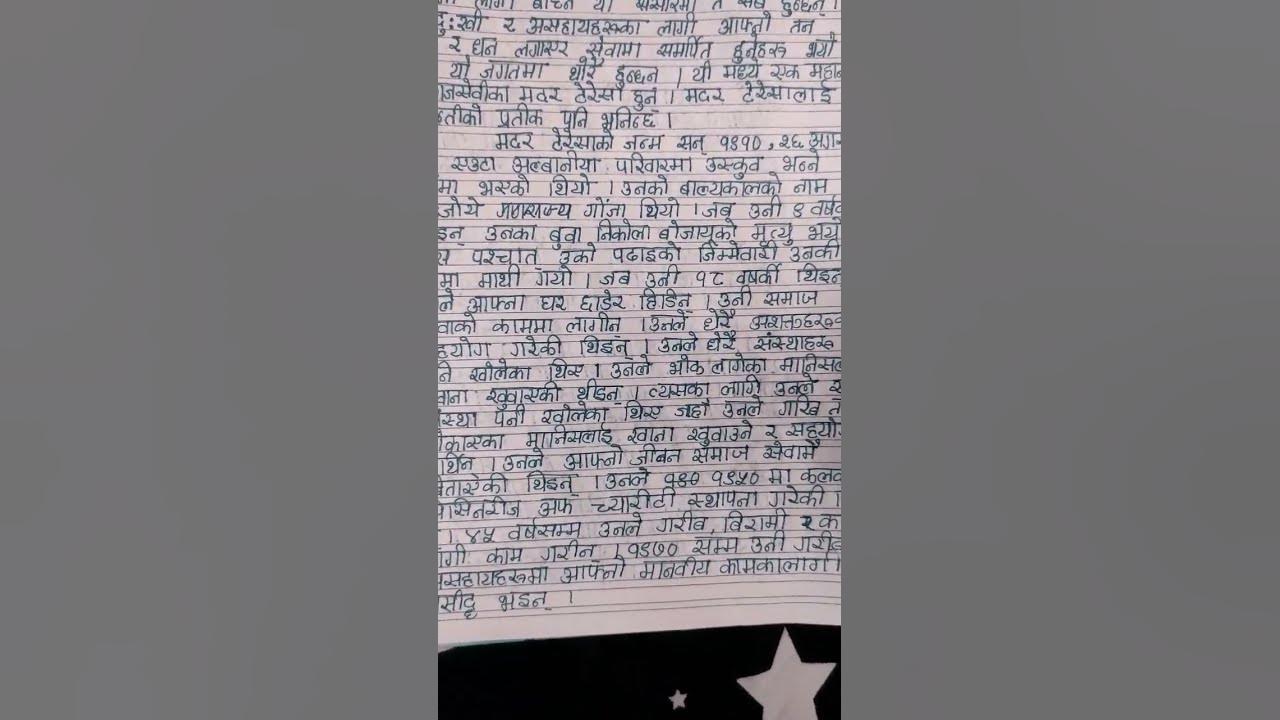 लागी बाच्न यो संसारमा त सबै हुन्छन् ।
दु:खी र असहायहरूका लागी आफ्नो तन
र धन लगाएर सेवामा समर्पित हुनेहरू भयो
यो जगतमा थोरै हुन्छन् । यी मध्ये एक महान
जसेवीका मदर टेरेसा हुन् । मदर टेरेसालाई
न्तीको प्रतीक पनि भनिन्छ ।
मदर टेरेसाको जन्म सन् १९१०, २६ अगस
एउटा अल्बानीया परिवारमा उस्कुव भन्ने
मा भएको थियो । उनको बाल्यकालको नाम
जोये गोंजा थियो । जब उनी ९ वर्षक
इन् उनका बुवा निकोला बोजायूको मृत्यु भयो
स पश्चात् उको पढाइको जिम्मेवारी उनकी
मा माथी गयो । जब उनी १८ वर्षकी थिइन
ले आफ्ना घर छाडेर हिडिन् । उनी समाज
वाको काममा लागीन् । उनले धेरै अशक्तहरूक
हयोग गरेकी थिइन् । उनले धेरै संस्थाहरू
ने खोलेका थिए । उनले भोक लागेका मानिसल
वाना खुवाएकी थीइन् । त्यसका लागि उनले स
स्था पनी खोलेका थिए जहाँ उनले गरिब त
कोकाएका मानिसलाई खाना खुवाउने र सहयो
र्थिन । उनले आफ्नो जीबन समाज सेवामै
बेताएकी थिइन् । उनले १९५० मा कलक
सिनरीज अफ च्यारीटी स्थापना गरेकी ।
। ४५ वर्षसम्म उनले गरीब, बिरामी र क
गी काम गरीन् । १९७० सम्म उनी गरीब
सहायहरूमा आफ्नो मानवीय कामकालागी
सीद्द भइन् ।